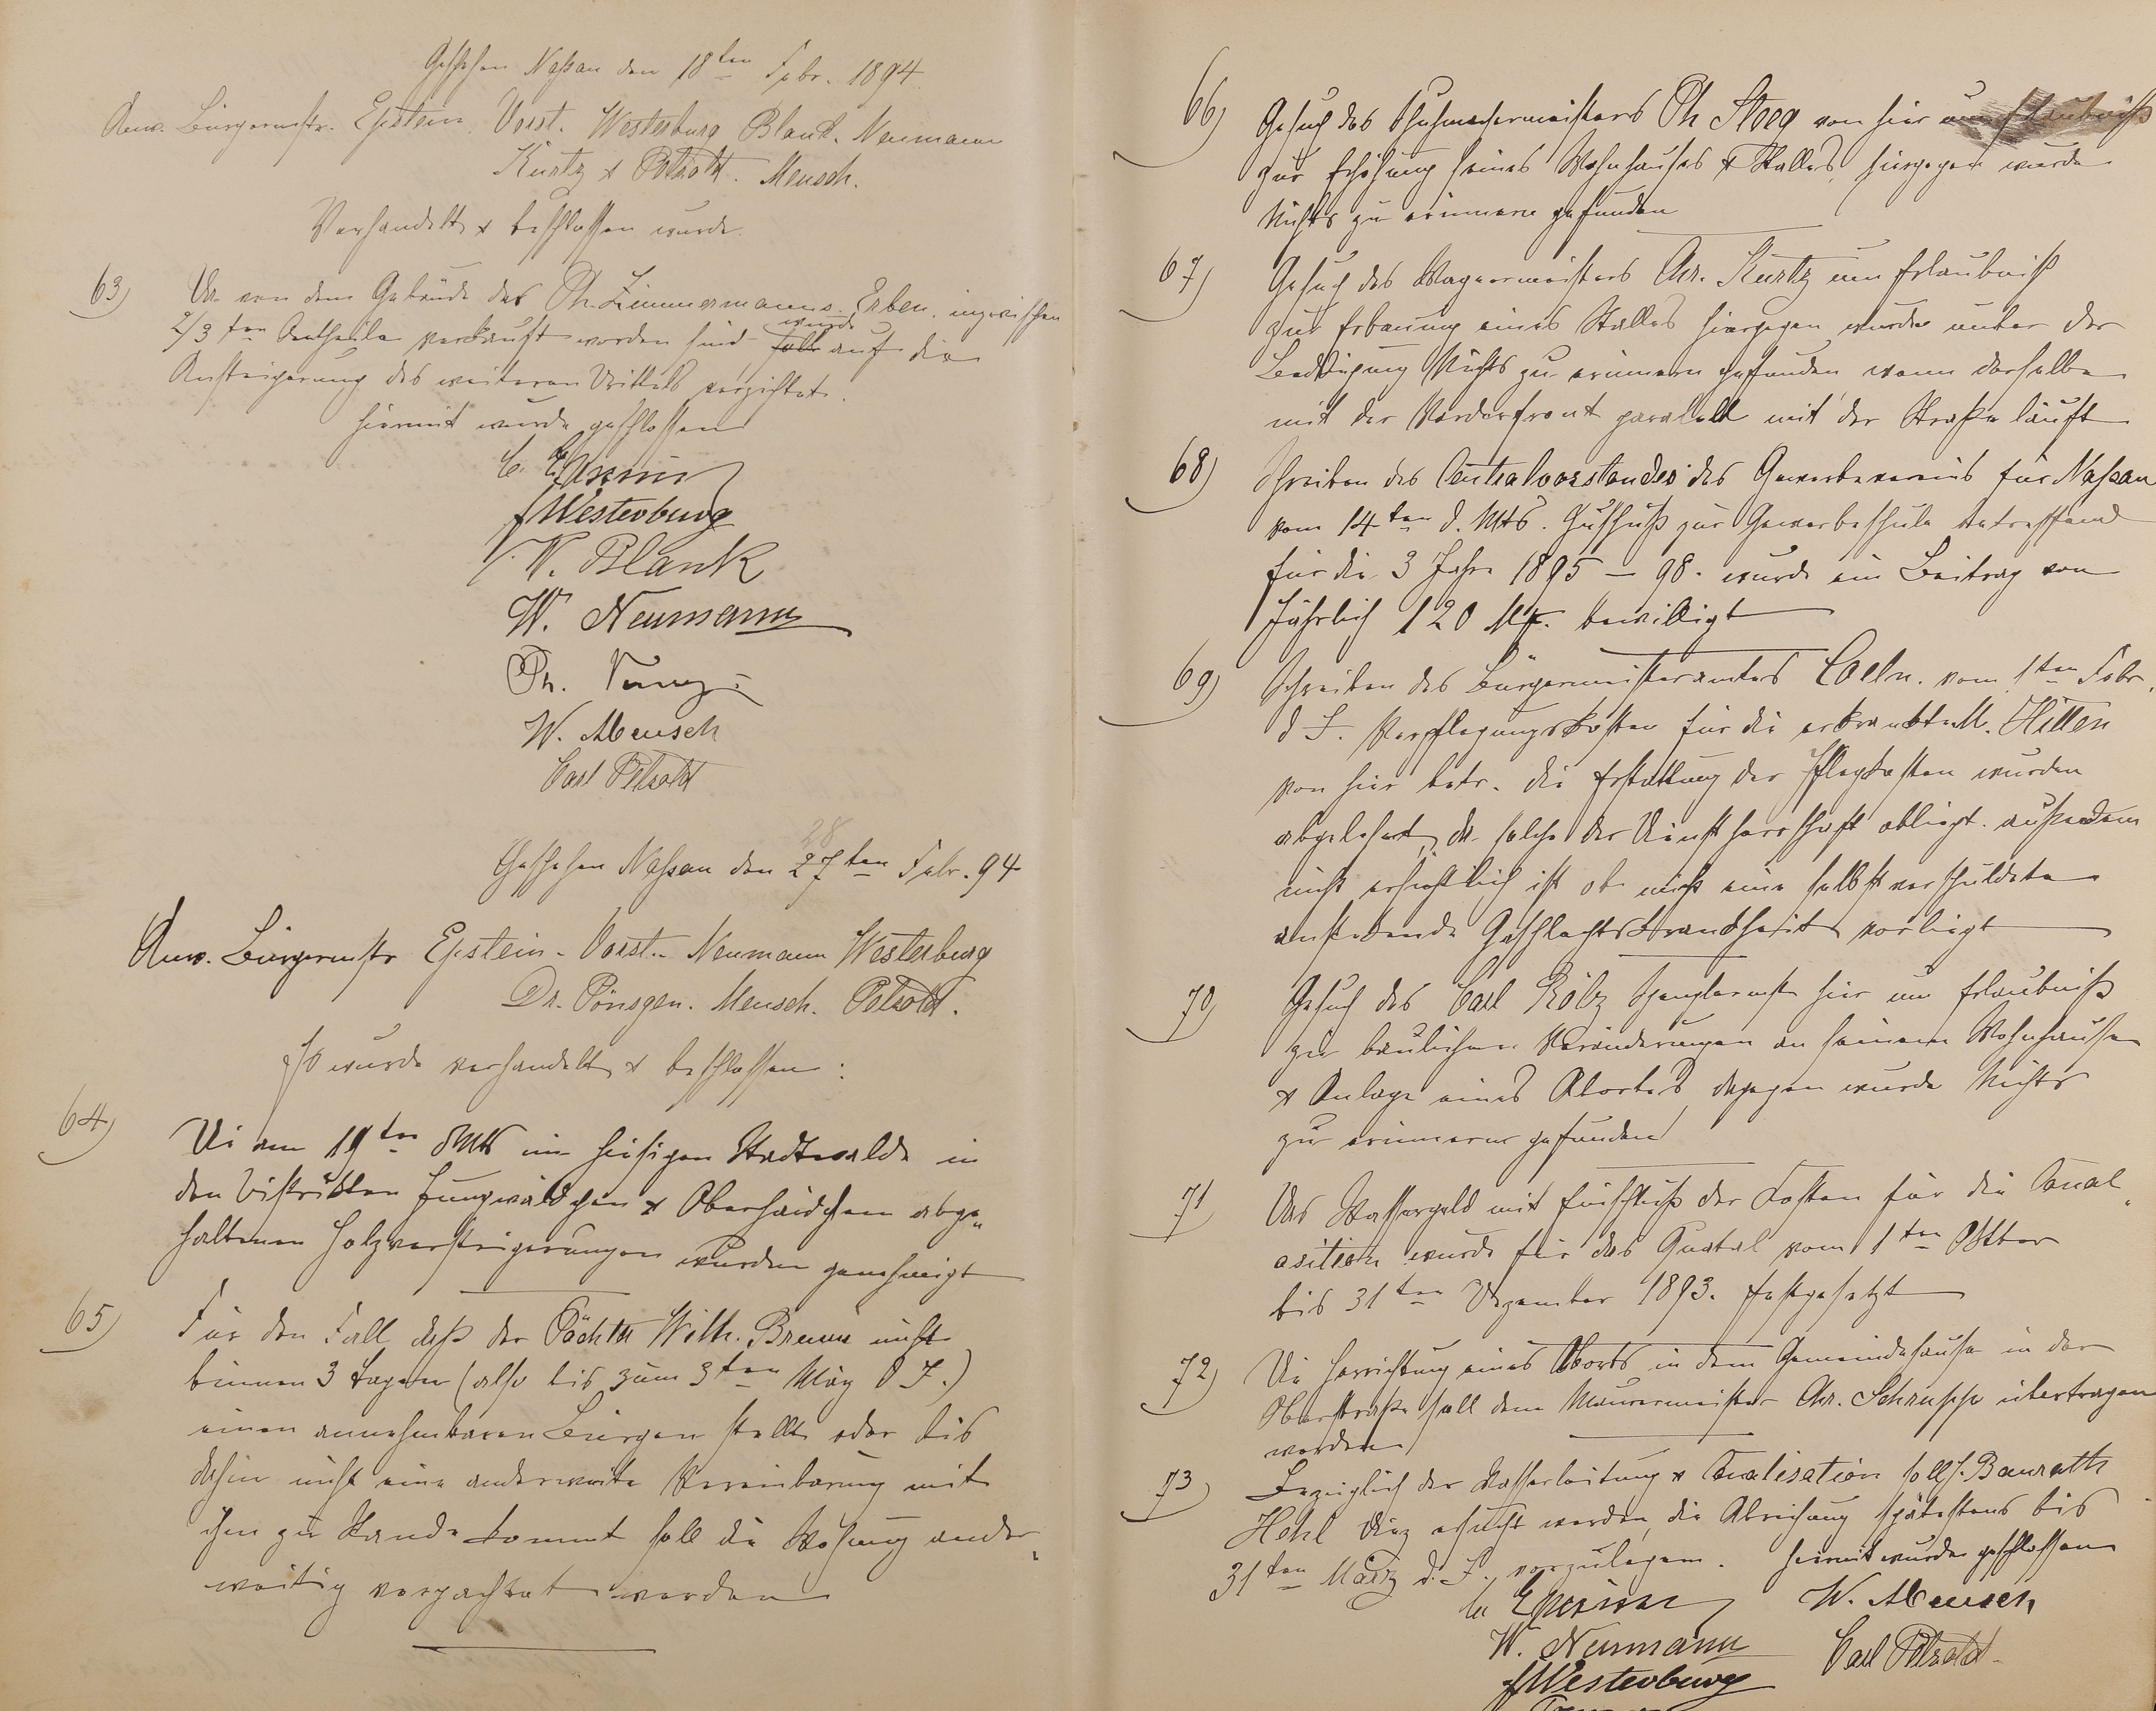 Geschehen Naßau den 18ten Febr. 1894.
Anw. Bürgermstr. Epstein, Vorst. Westerburg Blank. Neumann
Kurtz & Petzold. Mensch.
Verhandelt & beschlossen wurde.
63) Da von dem Gebäude des Ph. Zimmermanns Erben. inzwischen
2/3 ten Antheile verkauft worden sind soll wurde auf die
Ansteigerung des weiteren Drittels verzichtet.
hiermit wurde geschlossen
C. Epstein
Westerburg
W. Blank
W. Neumann
Ph.
W. Mensch
Carl Petzold
28
Geschehen Naßau den 27ten Febr. 94
Anw. Bürgermstr Epstein - Vorst. Neumann Westerburg
Dr. Pönsgen. Mensch. Petzold.
Es wurde verhandelt & beschlossen:
64) Die am 19ten d Mts im hiesigen Stadtwalde in
den Distrikten Jungwäldchen & Oberhaidchen abge„
haltenen Holzversteigerungen wurden genehmigt
65) Für den Fall daß der Pächter Wilh. Bremm nicht
binnen 3 Tagen (also bis zum 3ten März d J.)
einen annehmbaren Bürgen stellt oder bis
dahin nicht eine anderweite Vereinbarung mit
ihm zu Stande kommt soll die ander„
weitig verpachtet werden
66) Gesuch des Schuhmachermeisters Ph Stoeg von hier um Erlaubniß
zur Erhöhung seines Wohnhauses & Stalles, hiergegen wurde
Nichts zu erinnern gefunden
67) Gesuch des Wagnermeisters Chr. Kurtz um Erlaubniß
zur Erbauung eines Stalles hiergegen wurde unter der
Bedingung Nichts zu erinnern gefunden wenn derselbe
mit der Vorderfront paralell mit der Straße läuft
68) Schreiben des Centralvorstandes des Gewerbevereins für Naßau
vom 14ten d. Mts. Zuschuß zur Gewerbeschule betreffend
für die 3 Jahre 1895 – 98. wurde ein Beitrag von
jährlich 120 Mk. bewilligt
69) Schreiben des Bürgermeisteramtes Coeln. vom 1ten Febr.
d J. Verpflegungskosten für die erkrankte M. Hitten
von hier betr. die Erstattung der Pflegkosten wurden
abgelehnt, da solche der Dienstherrschaft obliegt. außerdem
nicht ersichtlich ist ob nicht eine selbstverschuldete
ansteckende Geschlechtskrankheit vorliegt
70) Gesuch des Carl Kölz Spenglermstr hier um Erlaubniß
zu baulichen Veränderungen an seinem Wohnhause
& Anlage eines Abortes dagegen wurde Nichts
zu erinnern gefunden
71) Das Wassergeld mit Einschluß der Kosten für die Canal„
asition wurde für das Quatal vom 1ten Oktber
bis 31ten Dezember 1893. festgesetzt
72) Die Herrichtung eines Aborts in dem Gemeindehause in der
Oberstraße soll dem Maurermeister Chr. Schrupp übertragen
werden
73) Bezüglich der Wasserleitung & Canalisation soll H. Baurath
Hehl Diez ersucht werden, die Abrechnung spätestens bis
31ten März d. J. vorzulegen. hiermit wurde geschlossen
C. Epstein W. Mensch
W. Neumann Carl Petzold
Westerburg